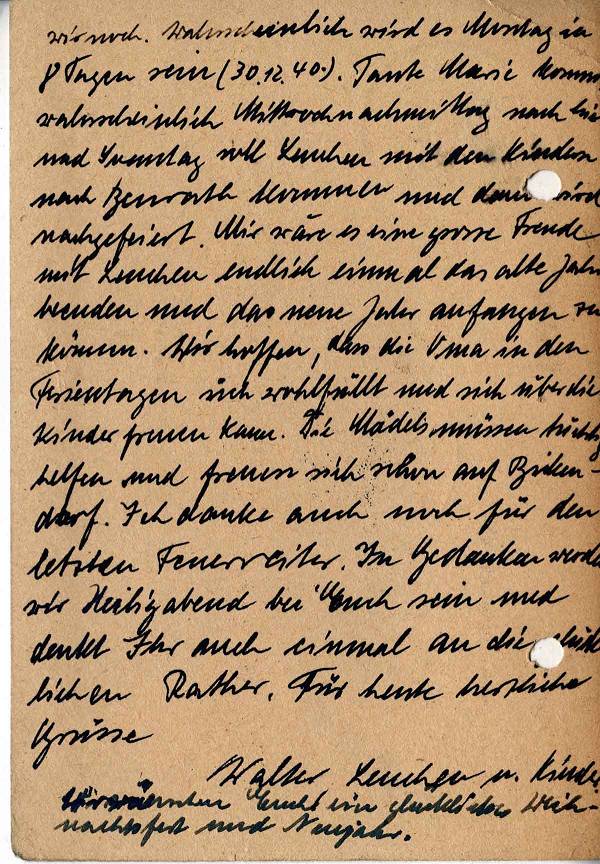 wir noch. Wahrscheinlich wird es Montag in
8 Tagen sein (30.12.40.). Tante Marie kommt
wahrscheinlich Mittwochnachmittag nach hier
und Sonntag soll Lenchen mit den Kindern
nach Benrath kommen und dann wird
nachgefeiert. Mir wäre es eine grosse Freude
mit Lenchen endlich einmal das alte Jahr
beenden und das neue Jahr anfangen zu
können. Wir hoffen, dass die Oma in den
Ferientagen sich wohlfühlt und sich über die
Kinder freuen kann. Die Mädels müssen tüchtig
helfen und freuen sich schon auf Bicken-
dorf. Ich danke auch noch für den
letzten Feuerreiter. In Gedanken werden
wir Heiligabend bei Euch sein und
denkt Ihr auch einmal an die glück-
lichen Rather. Für heute herzliche
Grüsse
Walter Lenchen u. Kinder
Wir wünschen Euch ein glückliches Weih-
nachtsfest und Neujahr.